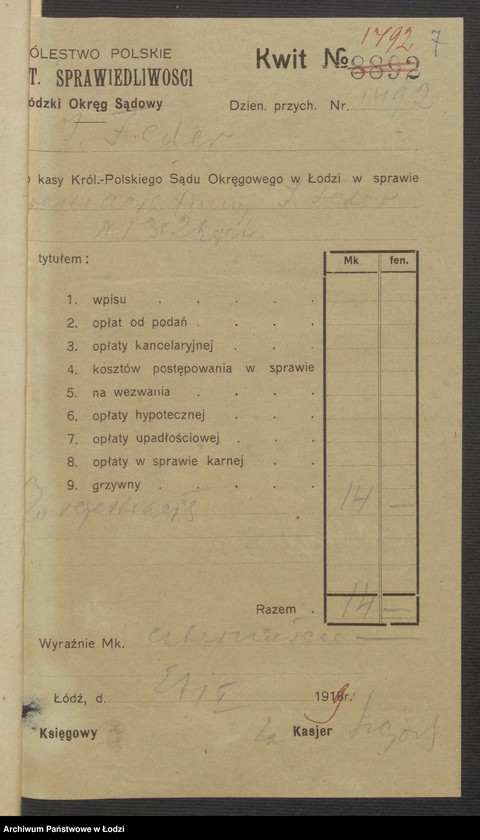 1792 7
ÓLESTWO POLSKIE
Kwit № 8892
T. SPRAWIEDLIWOŚCI
ódzki Okręg Sądowy
Dzien. przych. Nr. 1792
J. Feder
kasy Król.-Polskiego Sądu Okręgowego w Łodzi w sprawie
firmy J. Feder
tytułem:
Mk. fen.
1. wpisu
2. opłat od podań
3. opłaty kancelaryjnej
4. kosztów postępowania w sprawie
5. na wezwania
6. opłaty hypotecznej
7. opłaty upadłościowej
8. opłaty w sprawie karnej
9. grzywny
14 —
Razem 14 —
Wyraźnie Mk. czternaście —
Łódź, d. 1919 r.
Księgowy Za Kasjer
Archiwum Państwowe w Łodzi